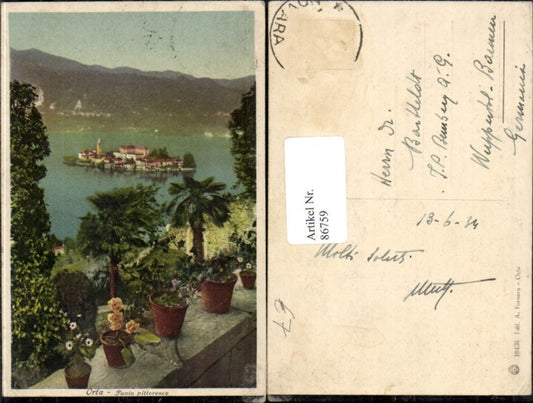 Orta - Punto pittoresco
NOVARA
Herrn Dr.
Bartheldt
J.P. Bemberg A.G.
Wuppertal-Barmen
Germania
Artikel Nr.
86759
13-6-34
Molti saluti
18436 Edit. A. Fornara - Orta